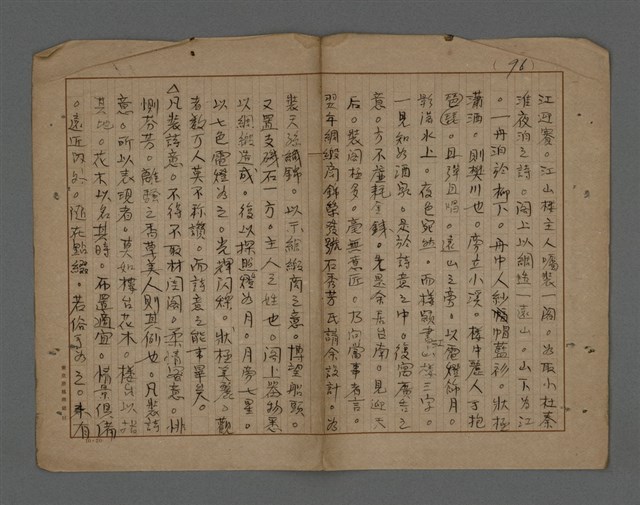 (96)
江迎賽。江山樓主人囑裝一閣。為取小杜秦
淮夜泊之詩。閣上以綢造一遠山。山下為江
。一舟泊於柳下。舟中人紗帽藍衫。狀極
瀟洒。則樊川也。旁立小溪。樓中麗人手抱
琵琶。且彈且唱。遠山之旁。以電燈飾月。
影落水上。夜色宛然。而樓額書江山樓三字。
一見知為酒家。是於詩意之中。復寓廣告之
意。方不虛耗金錢。先是余居台南。見迎天
后。裝閣極多。毫無意匠。乃向當事者言。
翌年綢緞商錦榮發號石秀芳氏請余設計。為
裝天孫織錦。以示綢緞商之意。博望船頭。
又置支磯石一方。主人之姓也。閣上器物悉
以綢緞造成。後以探照燈為月。月旁七星。
以七色電燈為之。光輝閃鑠。狀極美麗。觀
者數万人莫不称讚。而詩意之能事畢矣。
△凡裝詩意。不得不取材閨閣。柔情密意。悱
惻芬芳。離騷之香草美人則其例也。凡裝詩
意。所以表現者。莫如樓台花木。樓台以指
其地。花木以名其時。布置適宜。情景俱備
。遠近內外。隨在點綴。若俗子為之。未有